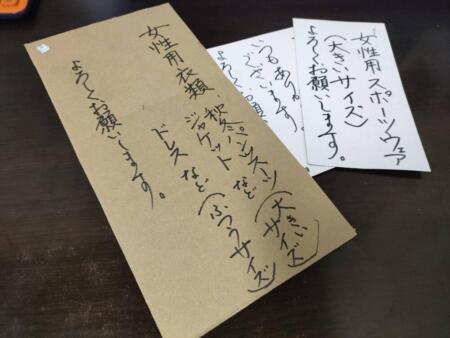 女性用衣類 秋冬パンツスーツ(大きいサイズ)
ジャケット など
ドレス など(ふつうサイズ)
よろしくお願いします。
いつもあり
ございます。
よろしくお願い
女性用スポーツウェア
(大きいサイズ)
よろしくお願いします。